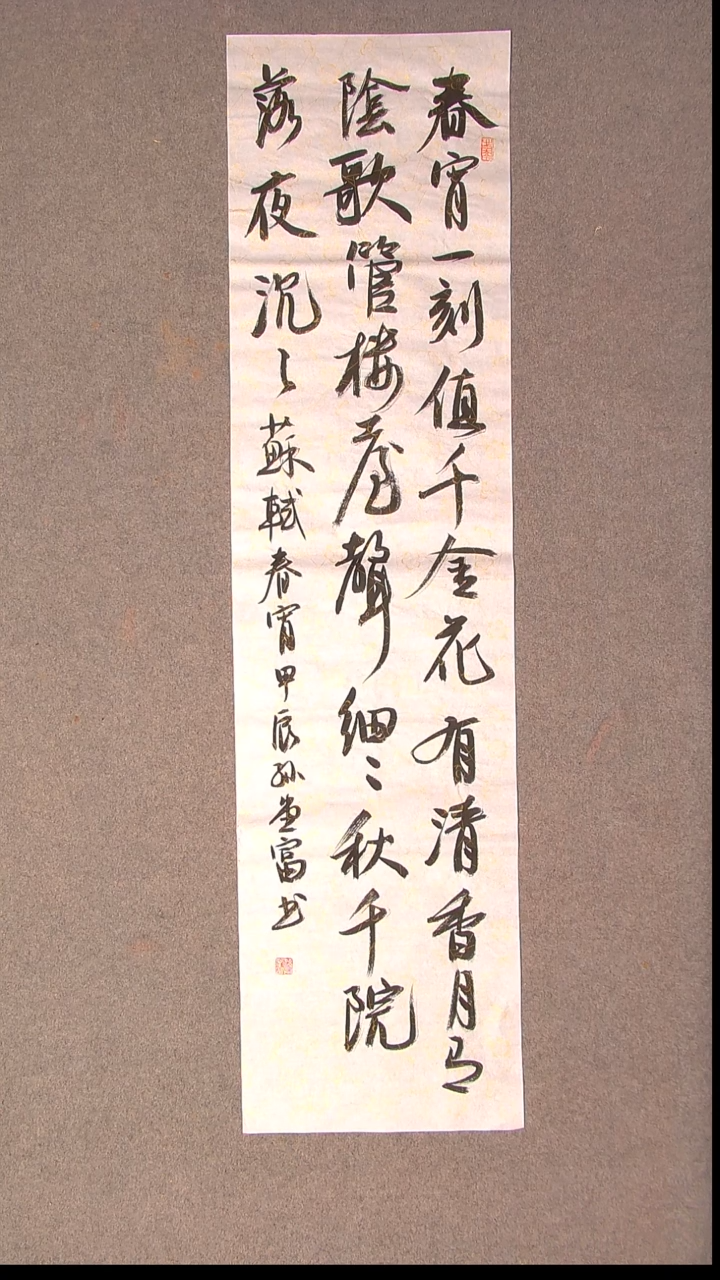 春宵一刻值千金花有清香月有
陰歌管楼臺聲細々秋千院
落夜沉々蘇軾春宵甲辰孙富书